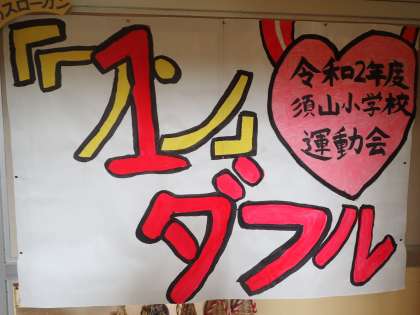 のスローガン
『ワン』
1
ダフル
令和2年度
須山小学校
運動会